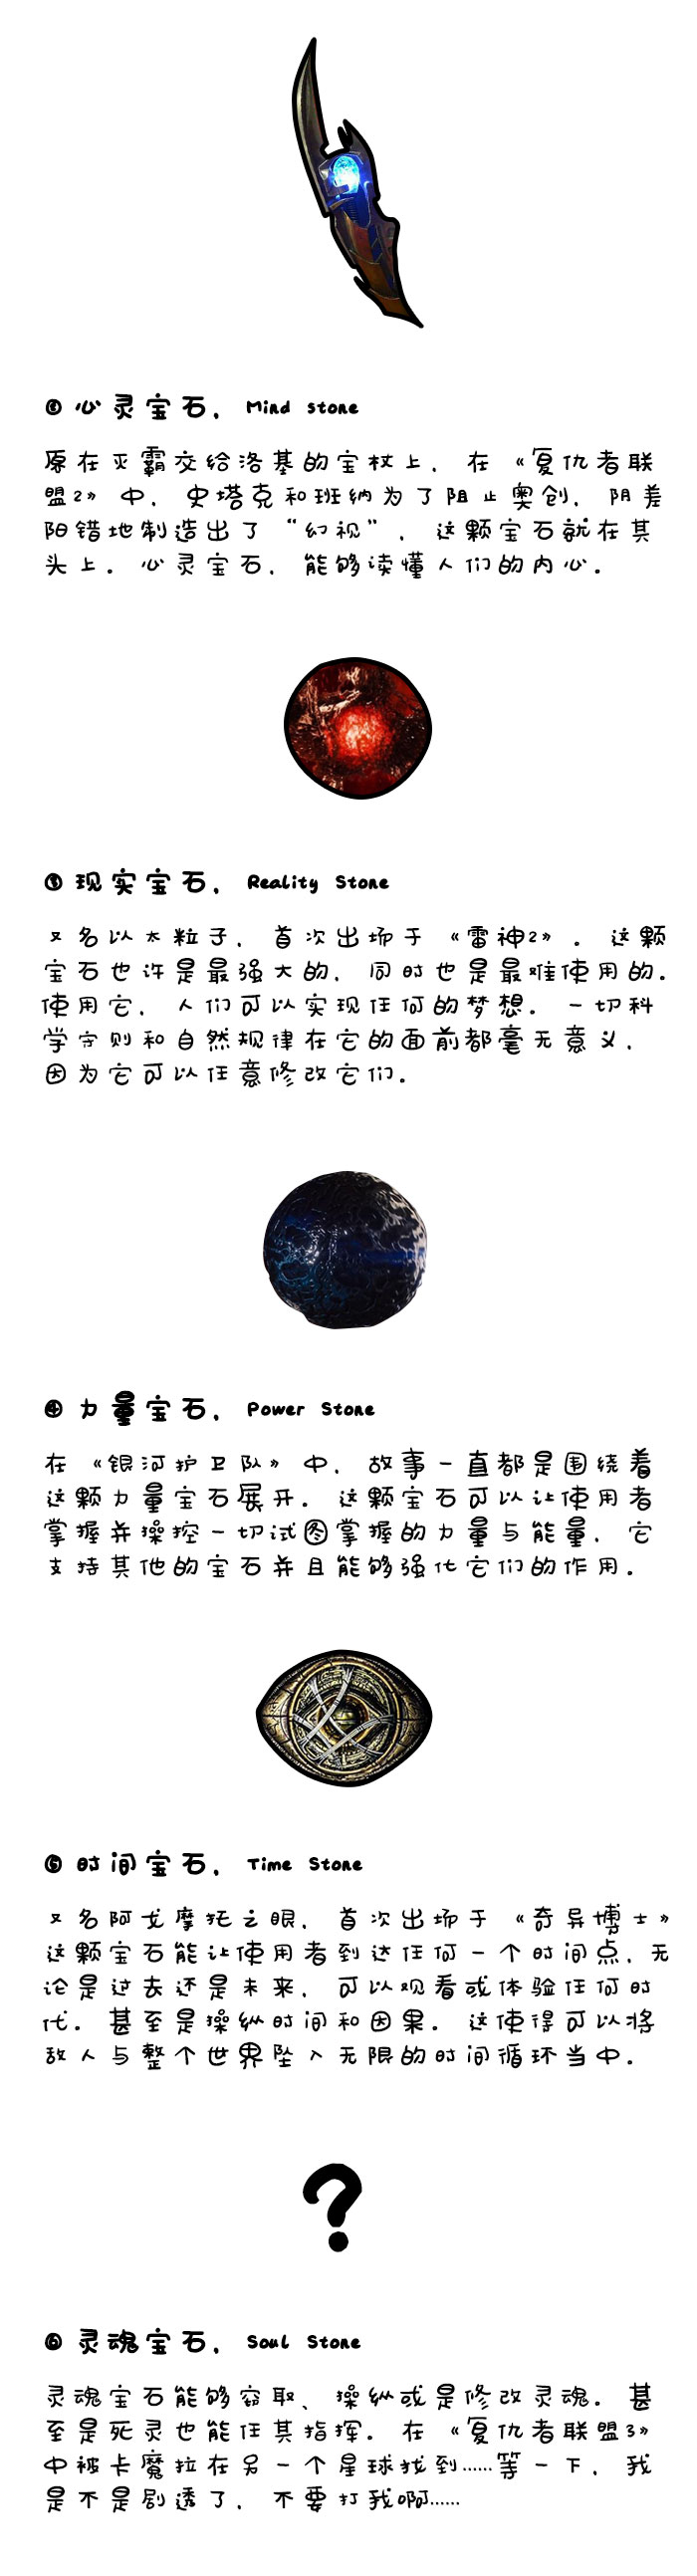 ② 心灵宝石， Mind stone
原在灭霸交给洛基的宝杖上， 在《复仇者联
盟2》中， 史塔克和班纳为了阻止奥创， 阴差
阳错地制造出了“幻视”， 这颗宝石就在其
头上。心灵宝石， 能够读懂人们的内心。
③ 现实宝石， Reality Stone
又名以太粒子， 首次出场于《雷神2》。这颗
宝石也许是最强大的， 同时也是最难使用的。
使用它， 人们可以实现任何的梦想。一切科
学守则和自然规律在它的面前都毫无意义，
因为它可以任意修改它们。
④ 力量宝石， Power Stone
在《银河护卫队》中， 故事一直都是围绕着
这颗力量宝石展开。这颗宝石可以让使用者
掌握并操控一切试图掌握的力量与能量， 它
支持其他的宝石并且能够强化它们的作用。
⑤ 时间宝石， Time Stone
又名阿戈摩托之眼， 首次出场于《奇异博士》
这颗宝石能让使用者到达任何一个时间点，无
论是过去还是未来， 可以观看或体验任何时
代。甚至是操纵时间和因果。这使得可以将
敌人与整个世界坠入无限的时间循环当中。
?
⑥ 灵魂宝石， Soul Stone
灵魂宝石能够窃取、操纵或是修改灵魂。甚
至是死灵也能任其指挥。在《复仇者联盟3》
中被卡魔拉在另一个星球找到……等一下， 我
是不是剧透了， 不要打我啊……